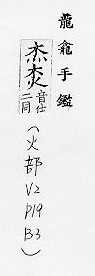 龍龕手鑑
杰
音仕
二同
(火部
V2
P19
B3)